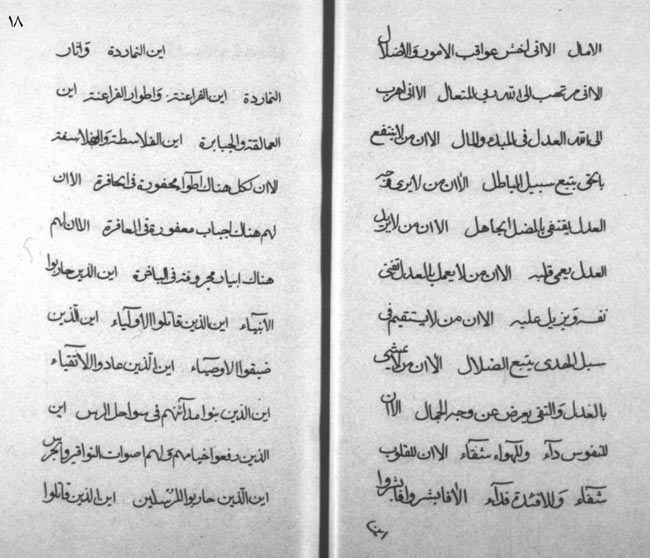 الامال الا انى اخشى عواقب الامور والاضلال
الا انى مرتهب الى الله ربى المتعال الا انى اهرب
الى الله العدل فى المبدء والمال الا ان من لاينتفع
بالحق يتبع سبيل الباطل الا ان من لايرى وجه
العدل يقتفى بالمضل الجاهل الا ان من لايريد
العدل يعمى قلبه الا ان من لايعمل بالعدل تفنى
نفسه ويزيل عليه الا ان من لايستقيم فى
سبل الهدى يتبع الضلال الا ان من لايمشى
بالعدل والتقى يعرض عن وجه الجمال الا ان
للنفوس دآء وللهواء شفآء الا ان للقلوب
شفآء وللافئدة فدآء الا فابشروا فابشروا
اين
١٨
اين النماردة واثار
النماردة اين الفراعنة واطوار الفراعنة اين
العمالقة والجبابرة اين الفلاسطة والفلاسفة
الا ان لكل هناك محفورة فى الحافرة الا ان
لهم هناك اجباب معفورة فى المعافرة الا ان لهم
هناك ابيار مجروفة فى اين الذين حاربوا
الأنبيآء اين الذين قاتلوا الاوليآء اين الذين
ضيقوا الاوصيآء اين الذين عادوا الاتقيآء
اين الذين بنوا مدآئنهم فى سواحل الرس اين
الذين رفعوا خيامهم ولهم اصوات النواقير والجرس
اين الذين حاربوا المرسلين اين الذين قاتلوا